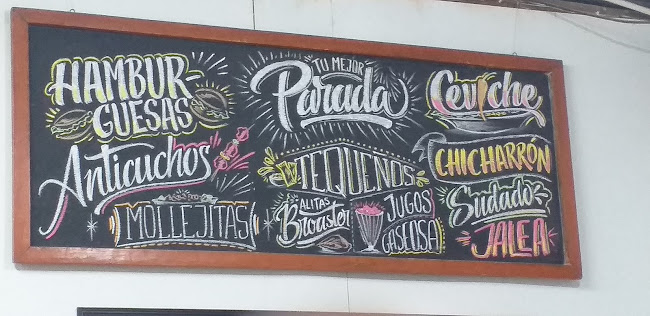 HAMBUR-
GUESAS
Anticuchos
MOLLEJITAS
TU MEJOR
Parada
TEQUEÑOS
ALITAS
Broaster
JUGOS
GASEOSA
Ceviche
CHICHARRÓN
Sudado
JALEA